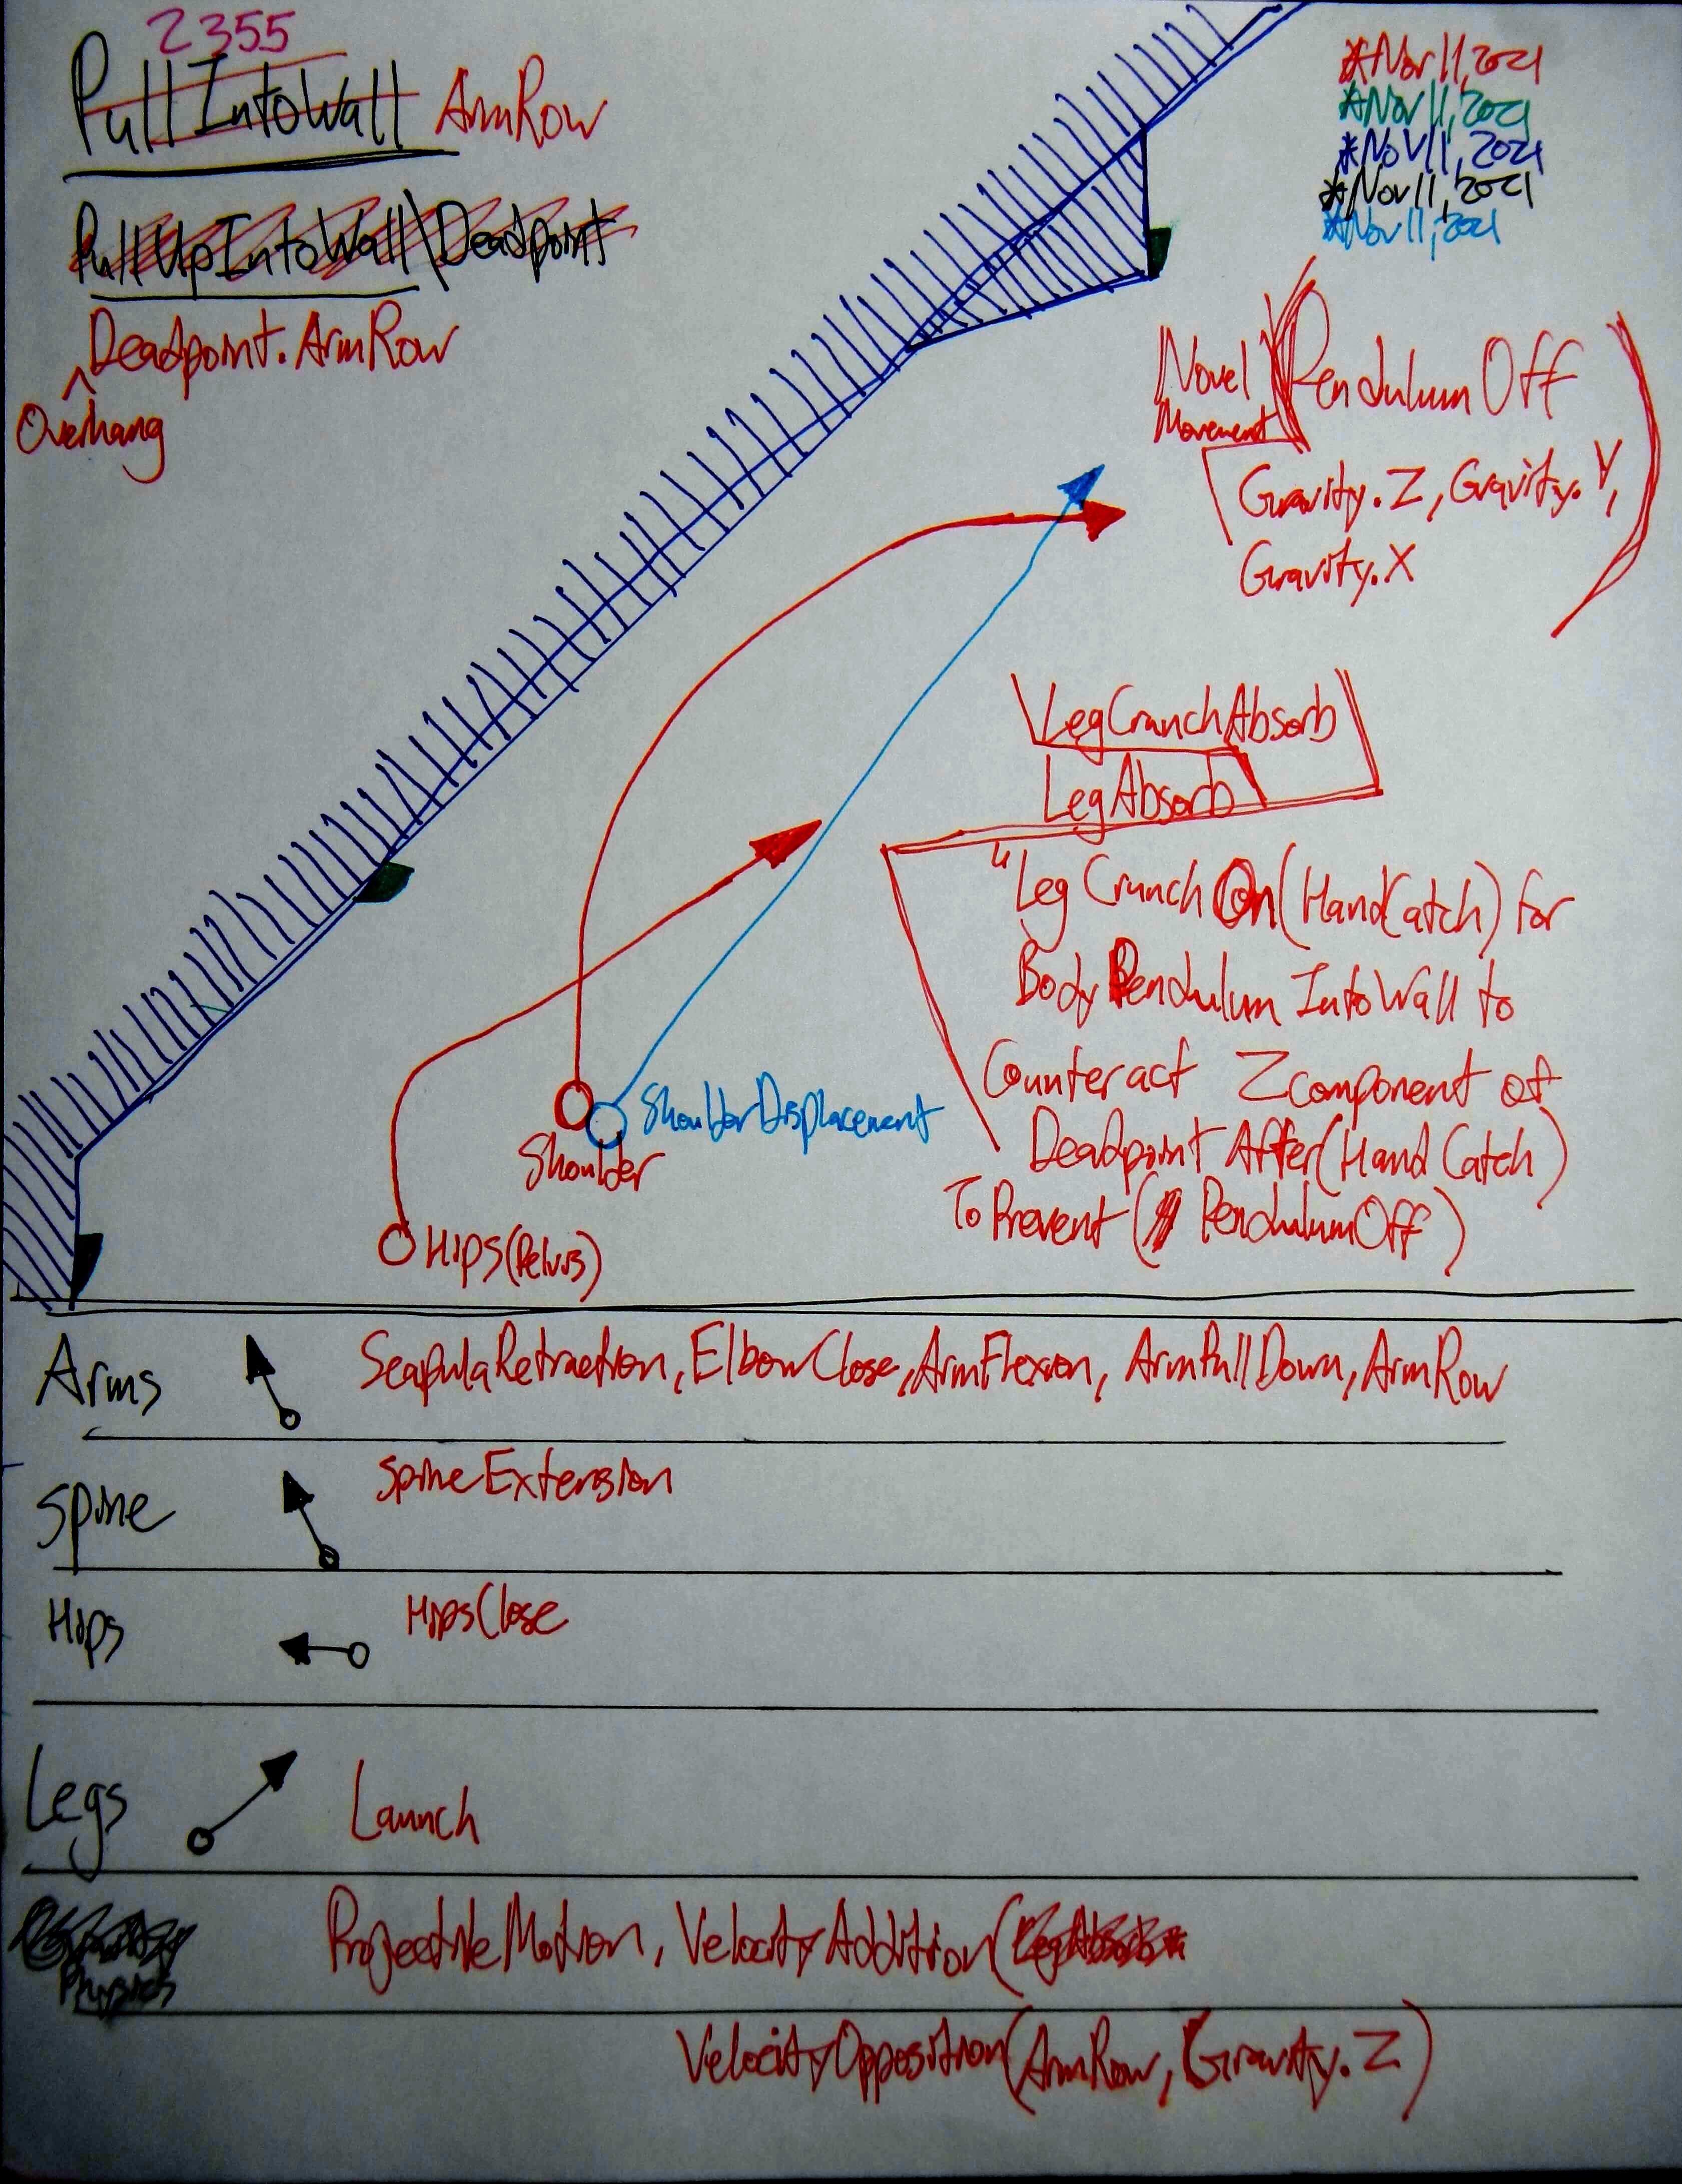 2355
PullIntoWall ArmRow
PullUpIntoWall\Deadpoint
^Deadpoint.ArmRow
Overhang
*Nov 11, 2021
*Nov 11, 2021
*Nov 11, 2021
*Nov 11, 2021
*Nov 11, 2021
Novel PendulumOff
Movement
Gravity.Z, Gravity.Y,
Gravity.X
LegCrunchAbsorb
LegAbsorb
"Leg Crunch On(HandCatch) for
Body Pendulum IntoWall to
Counteract Zcomponent of
Deadpoint After(Hand Catch)
To Prevent( PendulumOff)
ShoulderDisplacement
Shoulder
Hips(Pelvis)
Arms ScapulaRetraction, ElbowClose, ArmFlexion, ArmPullDown, ArmRow
Spine SpineExtension
Hips HipsClose
Legs Launch
Physics ProjectileMotion, VelocityAddition(
VelocityOpposition(ArmRow, Gravity.Z)